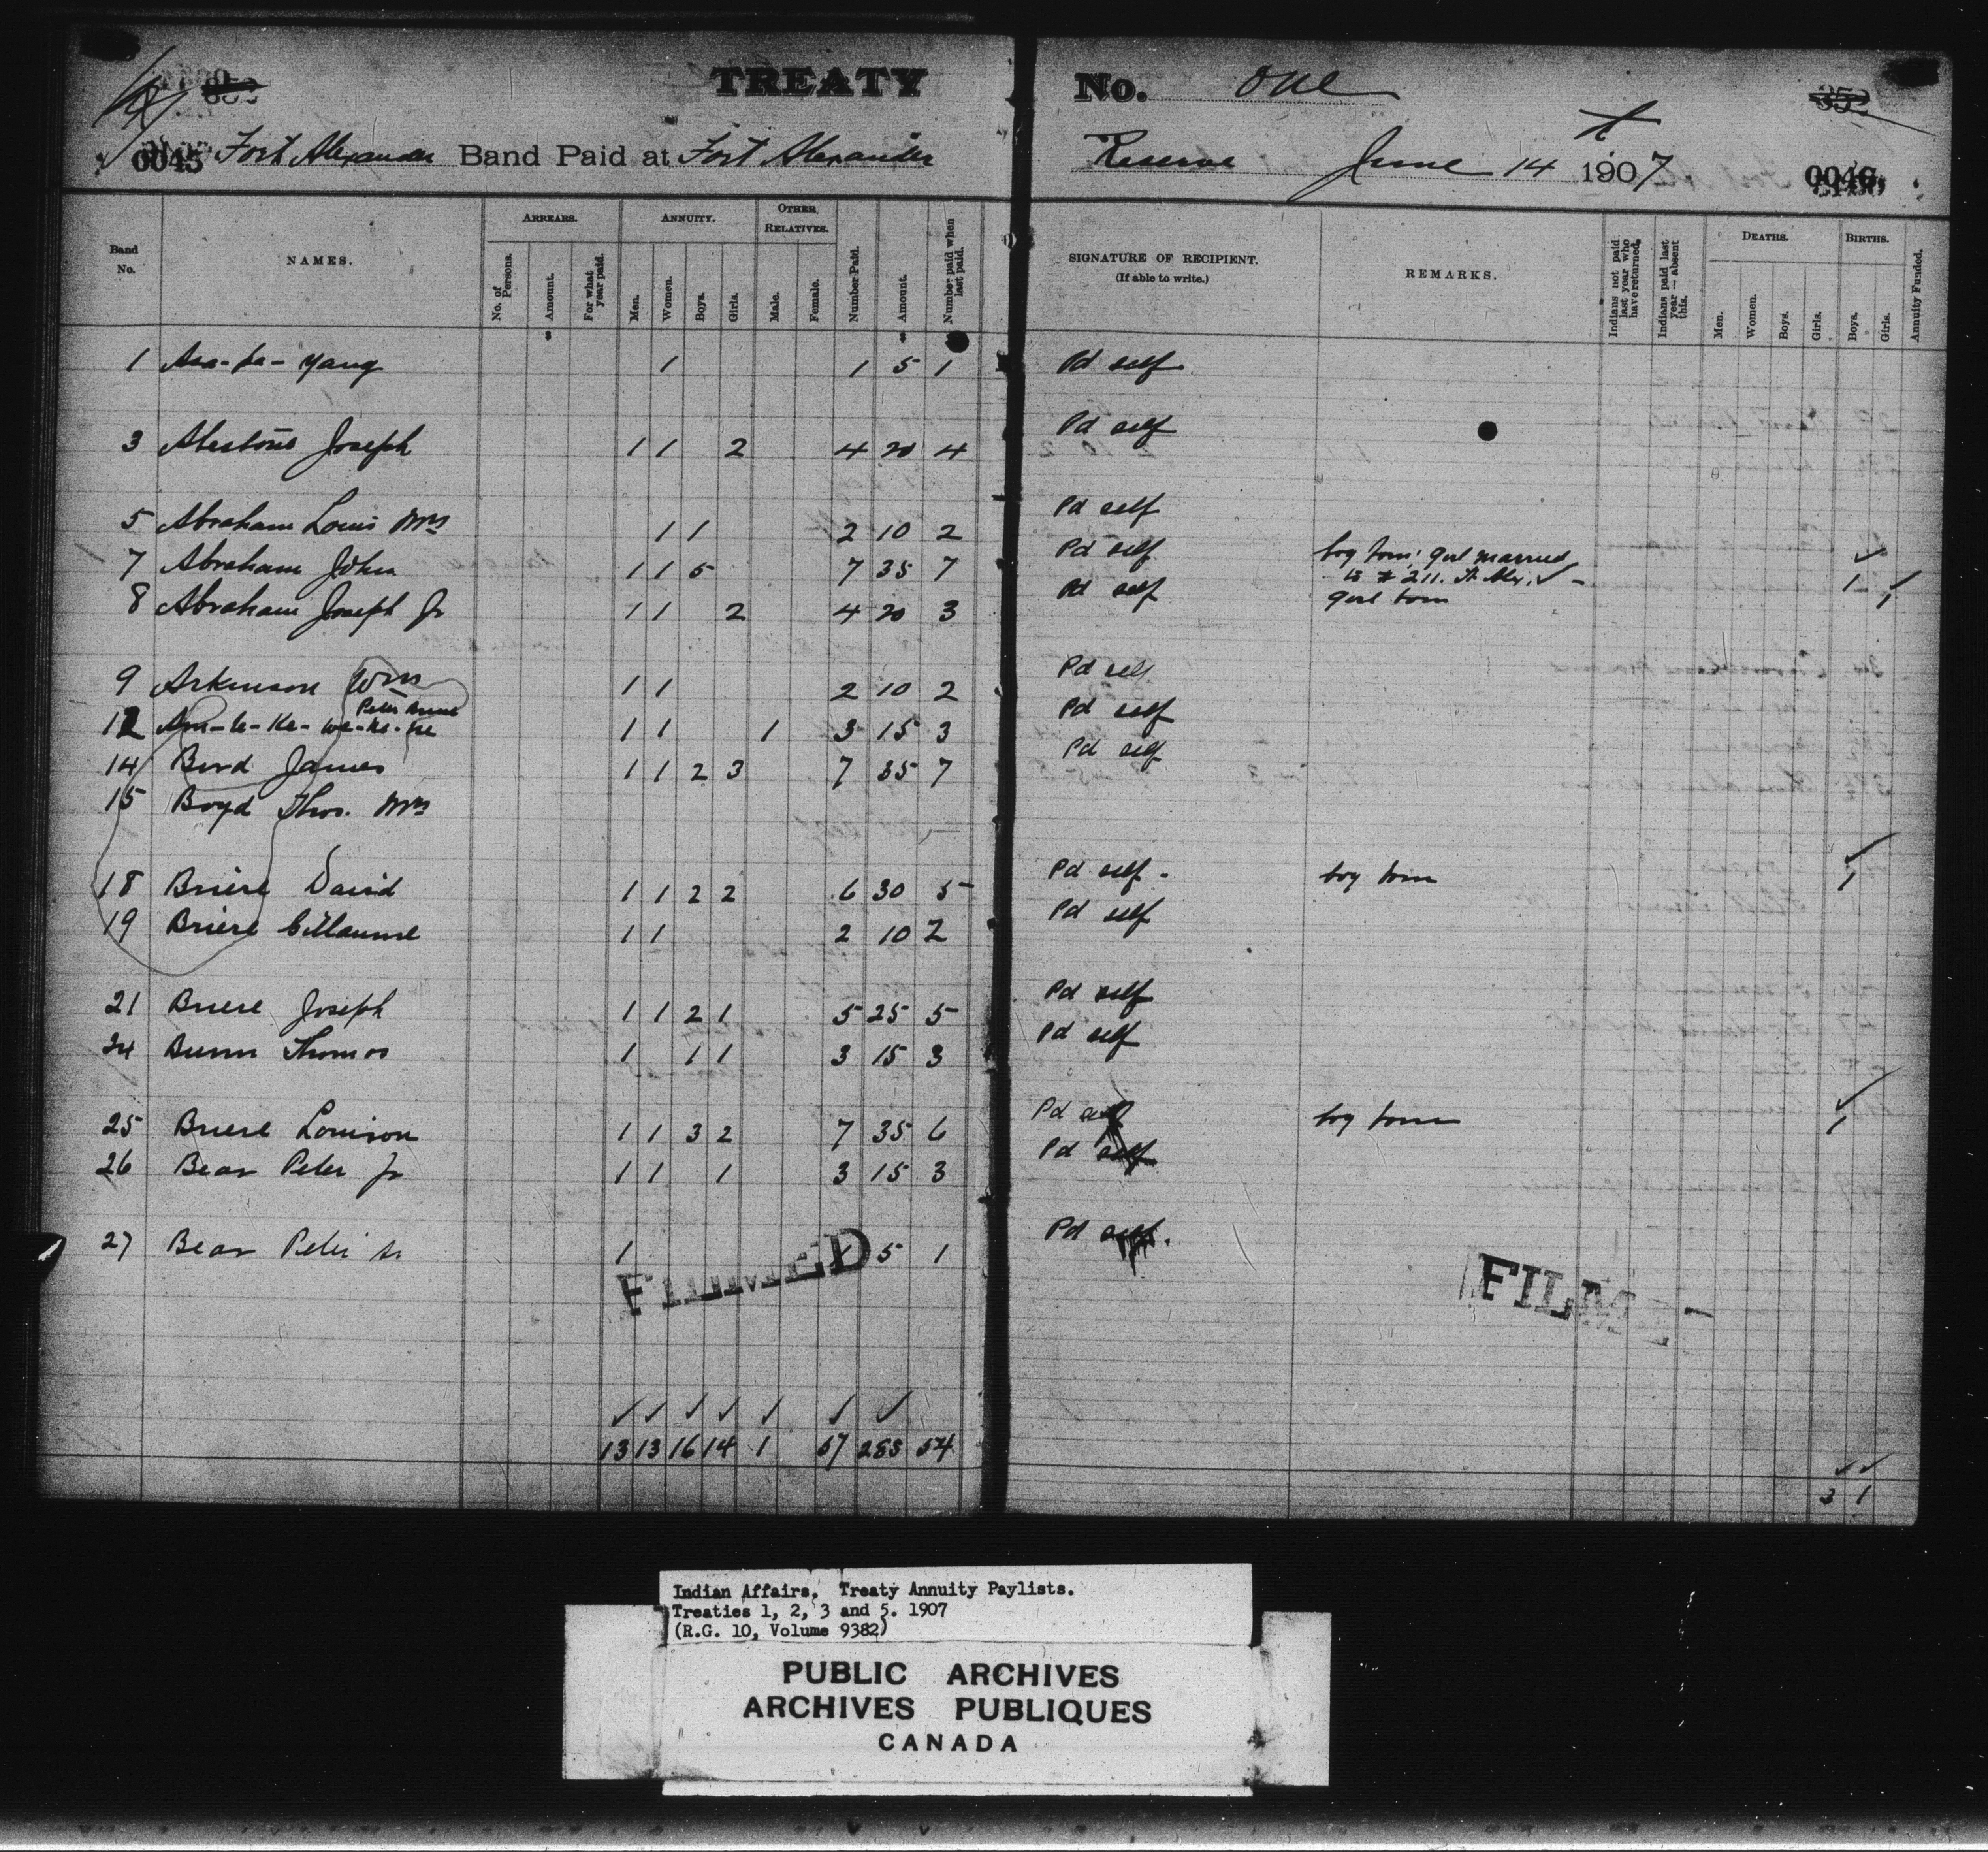 TREATY No. One
0045 Fort Alexander Band Paid at Fort Alexander Reserve June 14 1907 0046
Band No. NAMES. ARREARS. No. of Persons. Amount. For what year paid. ANNUITY. Men. Women. Boys. Girls. OTHER RELATIVES. Male. Female. Number Paid. Amount. Number paid when last paid. SIGNATURE OF RECIPIENT. (If able to write.) REMARKS. Indians not paid last year who have returned. Indians paid last year — absent this. DEATHS. Men. Women. Boys. Girls. BIRTHS. Boys. Girls. Annuity Funded.
1 1 1 5 1 Pd self
3 Joseph 1 1 2 4 20 4 Pd self
5 Abraham Louis Mrs 1 1 2 10 2 Pd self
7 Abraham John 1 1 5 7 35 7 Pd self boy born; girl married
to # 211. Ft. Alex. ✓ 1
8 Abraham Joseph Jr 1 1 2 4 20 3 Pd self girl born 1
9 Arkinson Wm 1 1 2 10 2 Pd self
Peter
12 1 1 1 3 15 3 Pd self
14 Bird James 1 1 2 3 7 35 7 Pd self
15 Boyd Thos. Mrs
18 Briere David 1 1 2 2 6 30 5 Pd self boy born 1
19 Briere 1 1 2 10 2 Pd self
21 Briere Joseph 1 1 2 1 5 25 5 Pd self
24 Bunn Thomas 1 1 1 3 15 3 Pd self
25 Briere Louison 1 1 3 2 7 35 6 Pd self boy born 1
26 Bear Peter Jr 1 1 1 3 15 3 Pd self
27 Bear Peter Sr 1 1 5 1 Pd self.
FILMED
FILM
✓ ✓ ✓ ✓ ✓ ✓ ✓
13 13 16 14 1 57 285 54
3 1
Indian Affairs. Treaty Annuity Paylists.
Treaties 1, 2, 3 and 5. 1907
(R.G. 10, Volume 9382)
PUBLIC ARCHIVES
ARCHIVES PUBLIQUES
CANADA